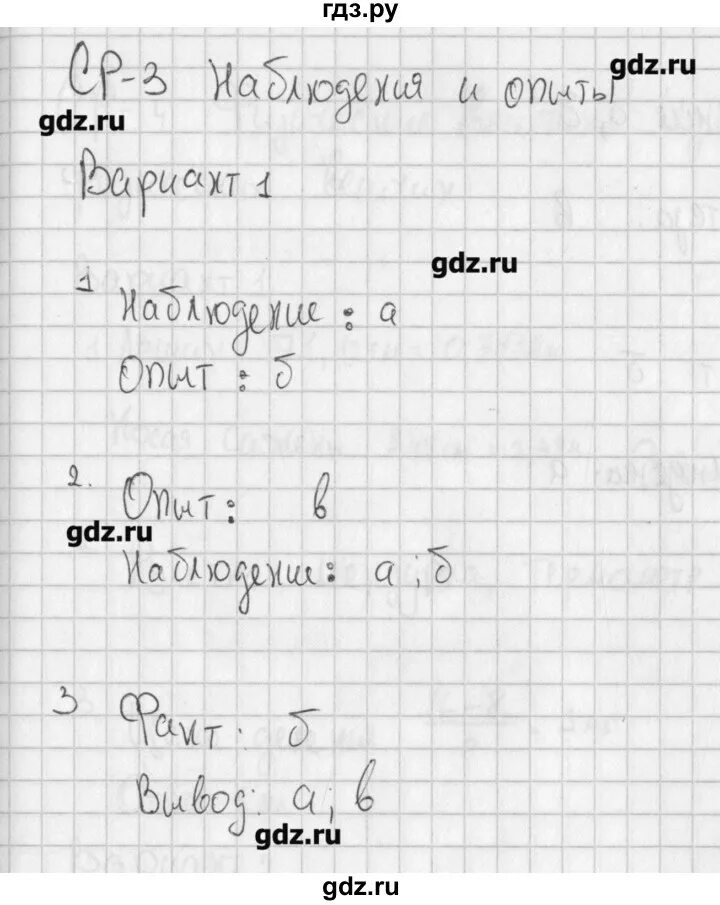 гдз.ру
СР-3 Наблюдения и опыты
gdz.ru
gdz.ru
Вариант 1
gdz.ru
1 Наблюдение : а
Опыт : б
2. Опыт: в
gdz.ru
Наблюдение: а ; б
3 Факт: б
Вывод: а; в
gdz.ru
gdz.ru